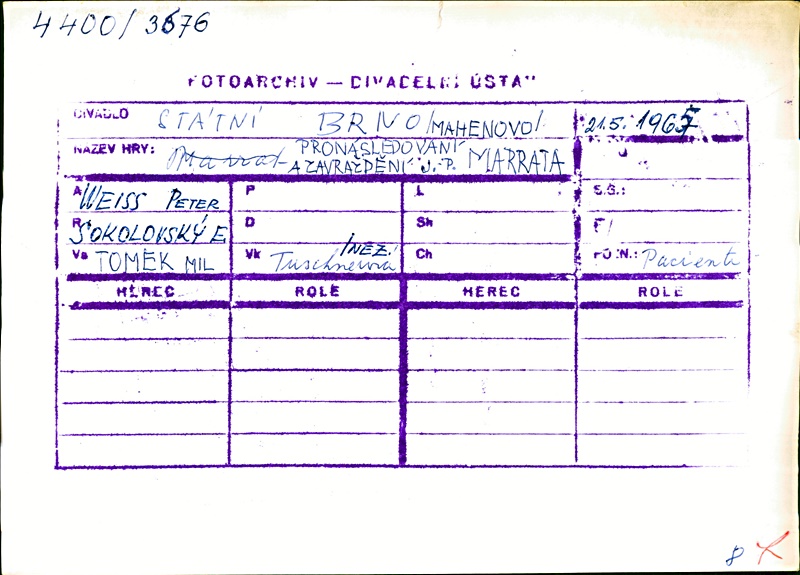 4400/3676
FOTOARCHIV — DIVADELNÍ ÚSTAV
DIVADLO STÁTNÍ BRNO /MAHENOVO/ 21.5. 1965
NÁZEV HRY: Marat PRONÁSLEDOVÁNÍ
A ZAVRAŽDĚNÍ J. P. MARRATA
A WEISS PETER P L S.Š.:
R SOKOLOVSKÝ E D Sh F/
Vs TOMEK MIL Vk INEZ. Ch POZN.: Pacienti
HEREC ROLE HEREC ROLE
8